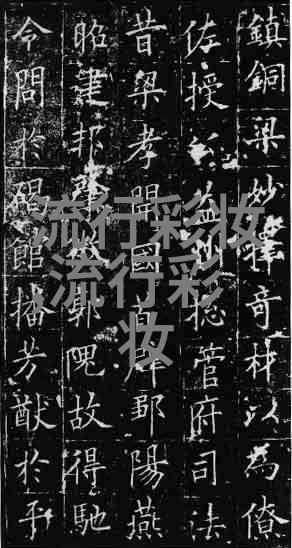 鎮銅梁妙擇奇材以為僚
佐授公益州摠管府司法
昔梁孝開國首辟鄒陽燕
昭建邦肇徵郭隗故得馳
令問於碣館播芳猷於平
流行彩妆
流行彩
妆